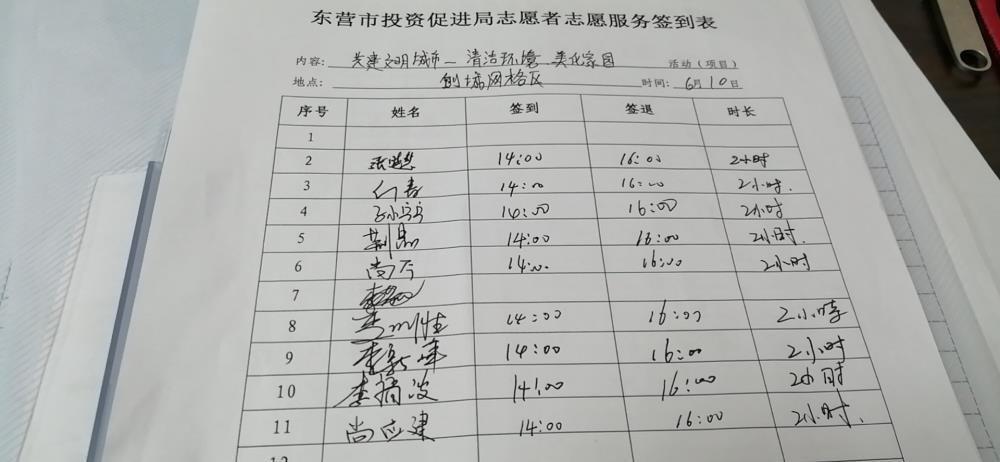 东营市投资促进局志愿者志愿服务签到表
内容: 共建文明城市－清洁环境 美化家园 活动（项目）
地点: 网格区 时间: 6月10日
序号 姓名 签到 签退 时长
1
2 14:00 16:00 2小时
3 14:00 16:00 2小时.
4 14:00 16:00 2小时
5 14:00 16:00 2小时.
6 14:00 16:00 2小时
7
8 14:00 16:00 2小时
9 李新峰 14:00 16:00 2小时
10 李福波 14:00 16:00 2小时
11 尚应建 14:00 16:00 2小时.